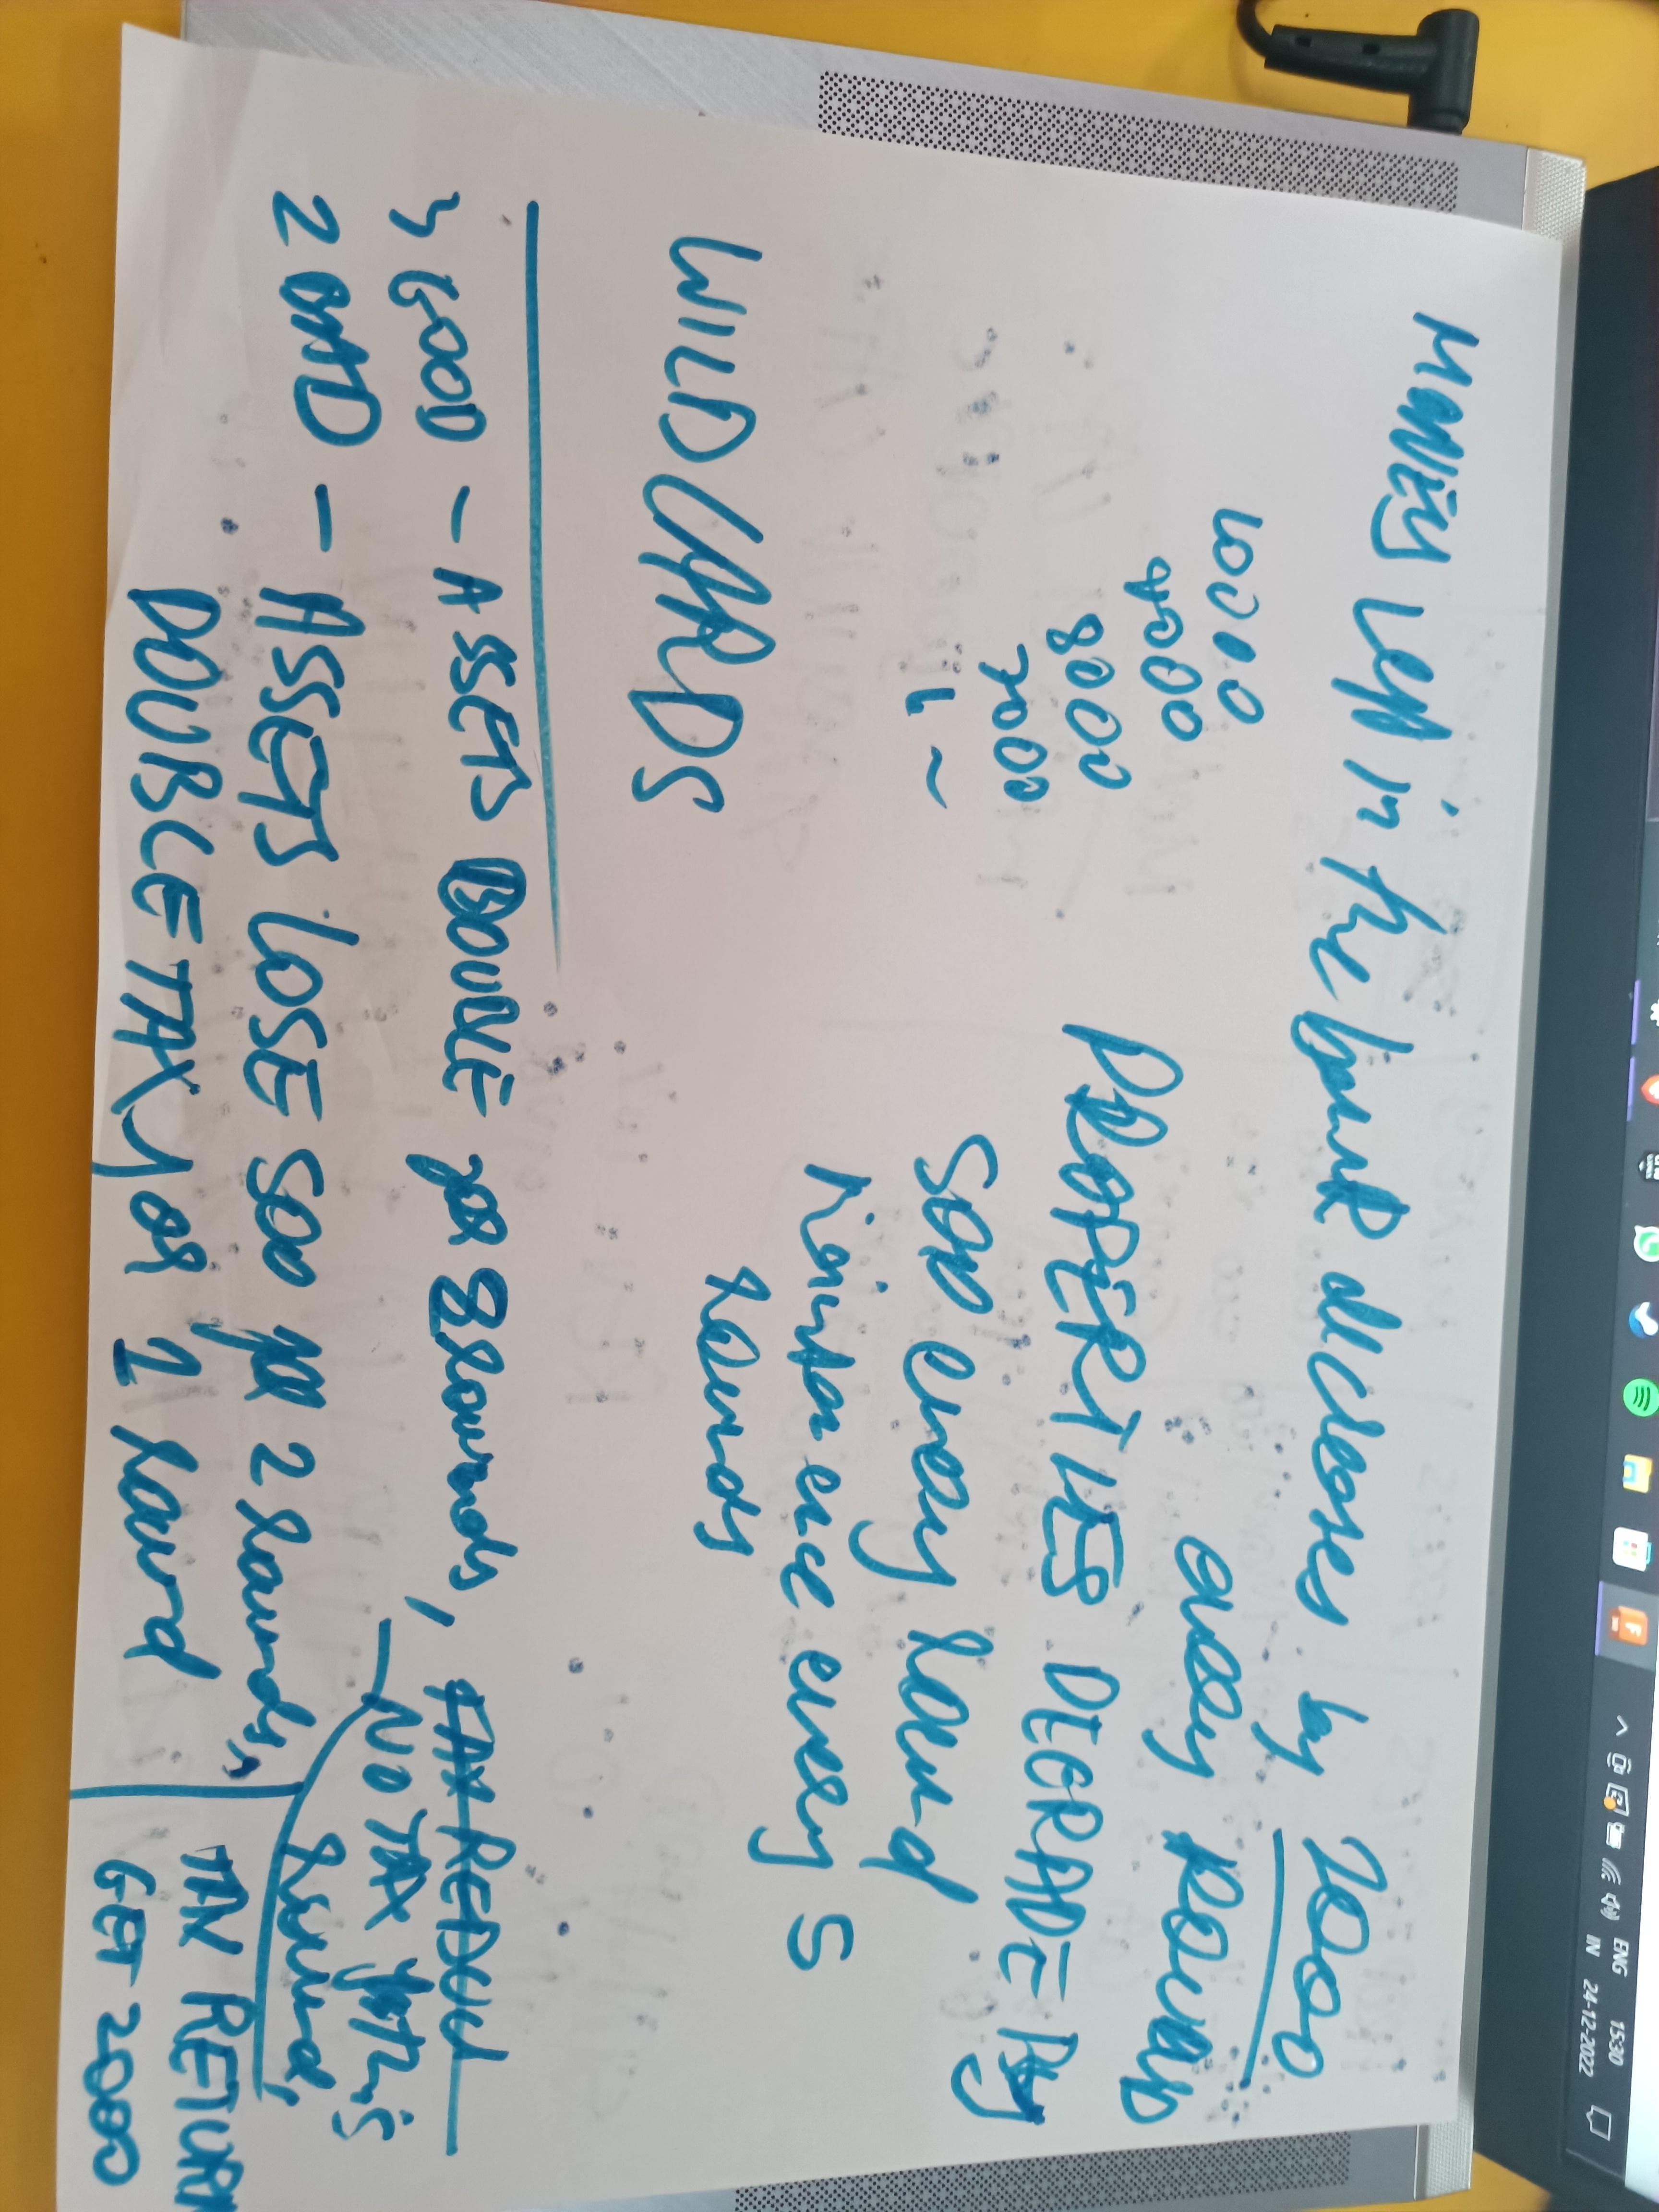 MONEY Left in the bank decreases by 1000
every ROUND
10000
9000
8000
7000
PROPERTIES DEGRADE By
500 every round
Maintenance every 5
rounds
WILD CARDS
3 GOOD - ASSETS DOUBLE for 3 rounds, TAX REDUCE
- NO TAX for this
Round,
2 BAD - ASSETS LOSE 500 for 2 rounds,
DOUBLE TAX for 1 round
TAX RETURN
GET 2000
ENG
IN
15:30
24-12-2022